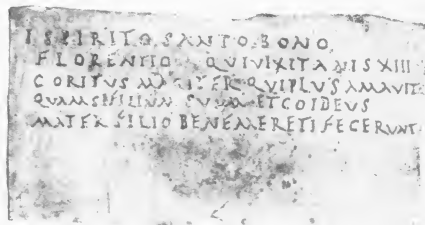 ISPIRITO SANTO BONO
FLORENTIO QUI VIXIT ANIS XIII
CORITUS MAGISTER QUI PLUS AMAVIT
QUAM SI FILIUM SUUM ET COIDEUS
MATER FILIO BENEMERETI FECERUNT